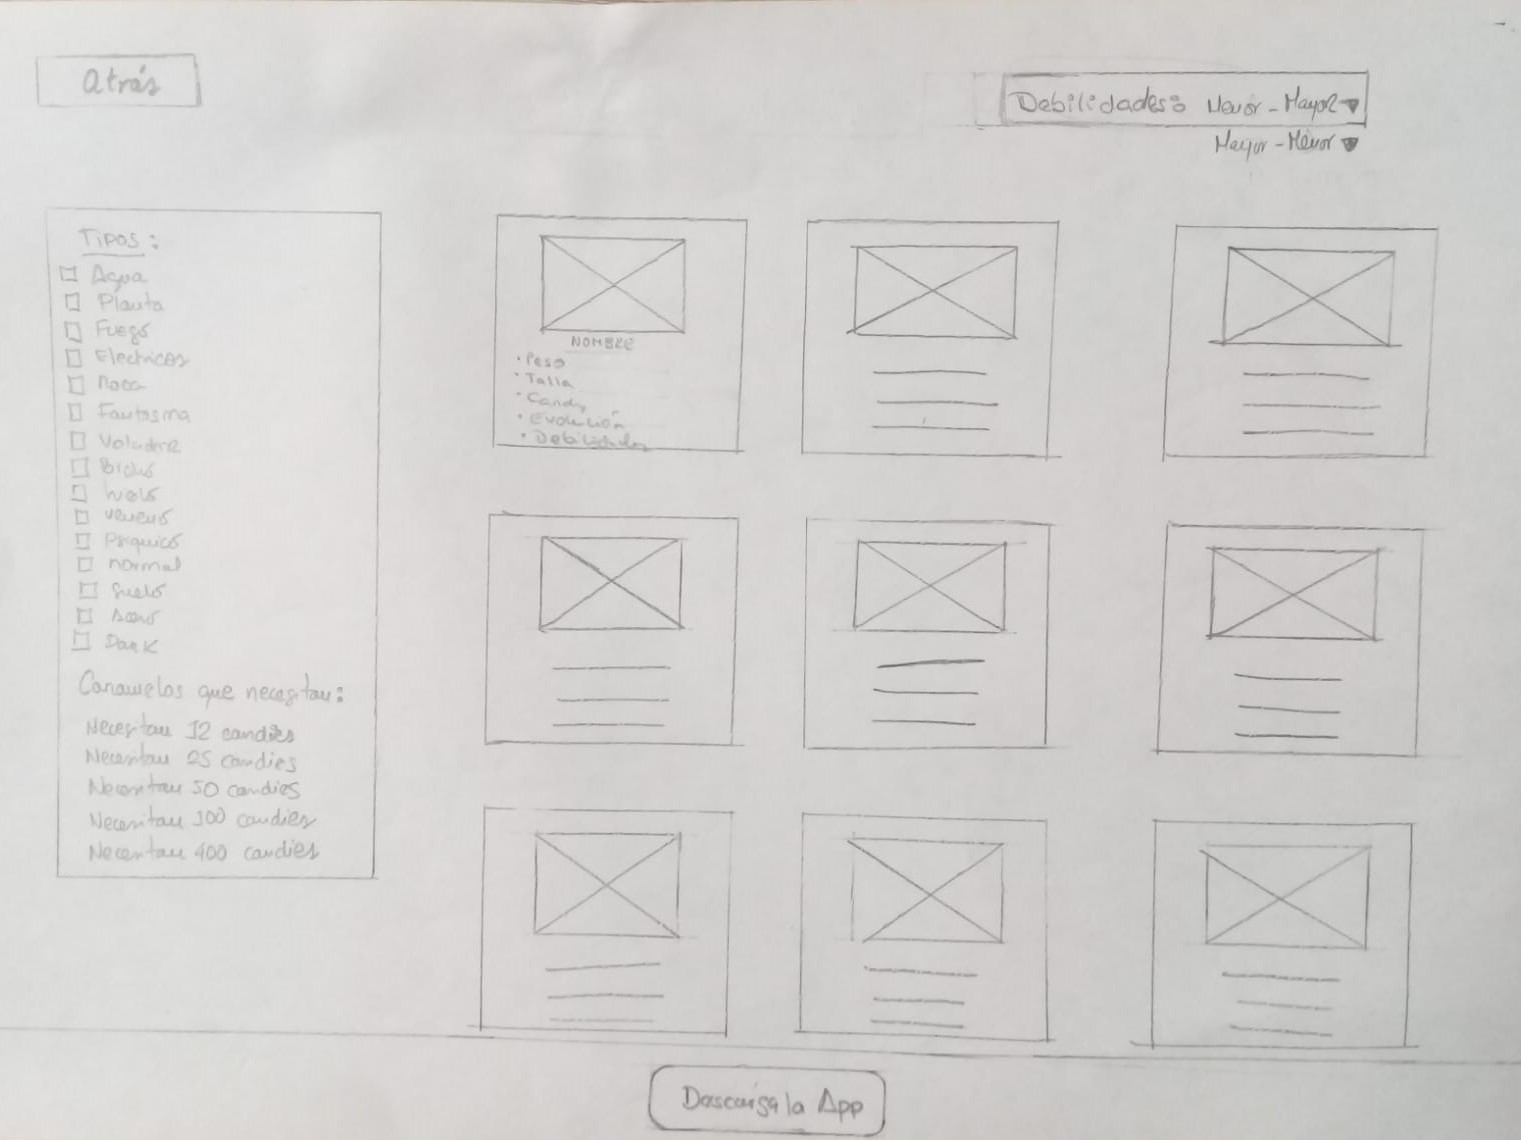 Atrás
Debilidades: Menor - Mayor
Mayor - Menor
Tipos:
Agua
Planta
Fuego
Electricos
Roca
Fantasma
Volador
Bicho
hielo
veneno
Psiquico
normal
Suelo
Acero
Dark
Caramelos que necesitan:
Necesitan 12 candies
Necesitan 25 candies
Necesitan 50 candies
Necesitan 100 candies
Necesitan 400 candies
NOMBRE
• Peso
• Talla
• Candy
• Evolución
• Debilidades
Descarga la App